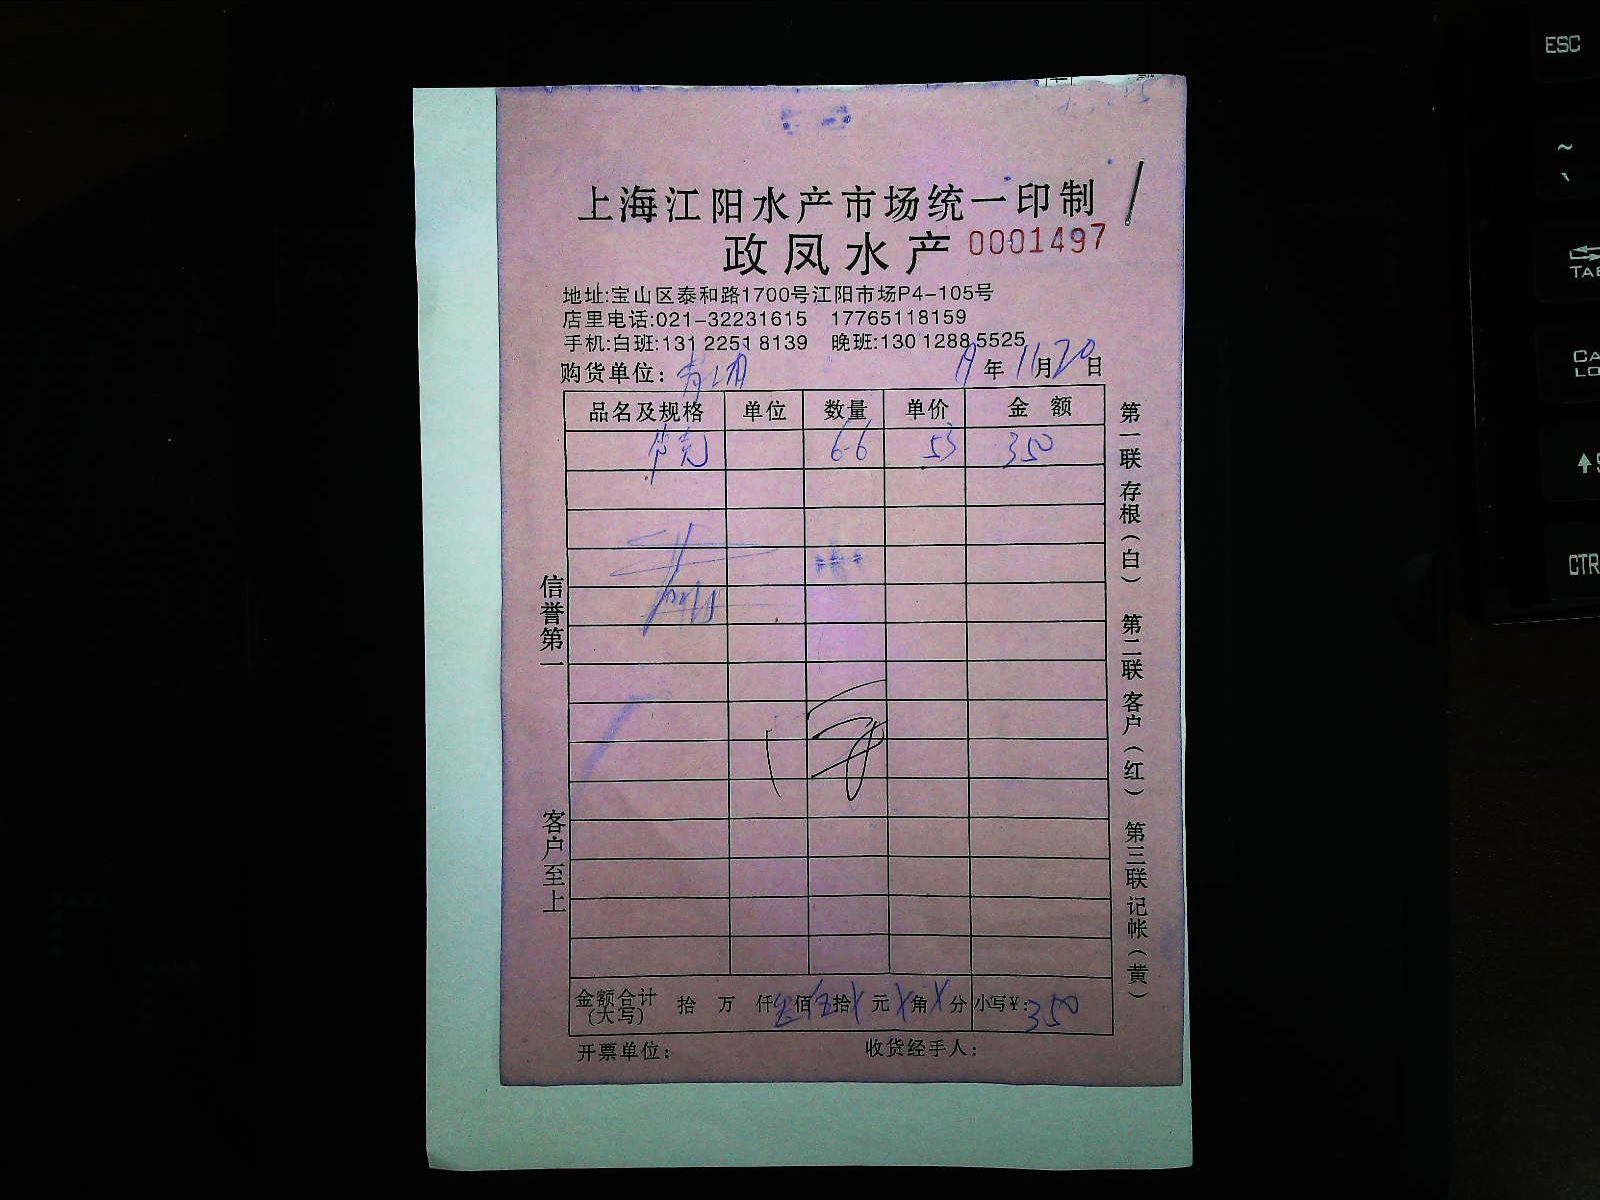 上海江阳水产市场统一印制
政凤水产 0001497
地址:宝山区泰和路1700号江阳市场P4-105号
店里电话:021-32231615 17765118159
手机:白班:131 2251 8139 晚班:130 1288 5525
购货单位: 年 11月20日
品名及规格 单位 数量 单价 金 额
6.6 53 350
信誉第一
客户至上
第一联 存根(白) 第二联 客户(红) 第三联 记帐(黄)
金额合计 拾 万 仟 叁佰 伍拾 X元 X角 X分 小写¥: 350
(大写)
开票单位: 收货经手人:
ESC
~
、
TAB
CA
LO
CTR